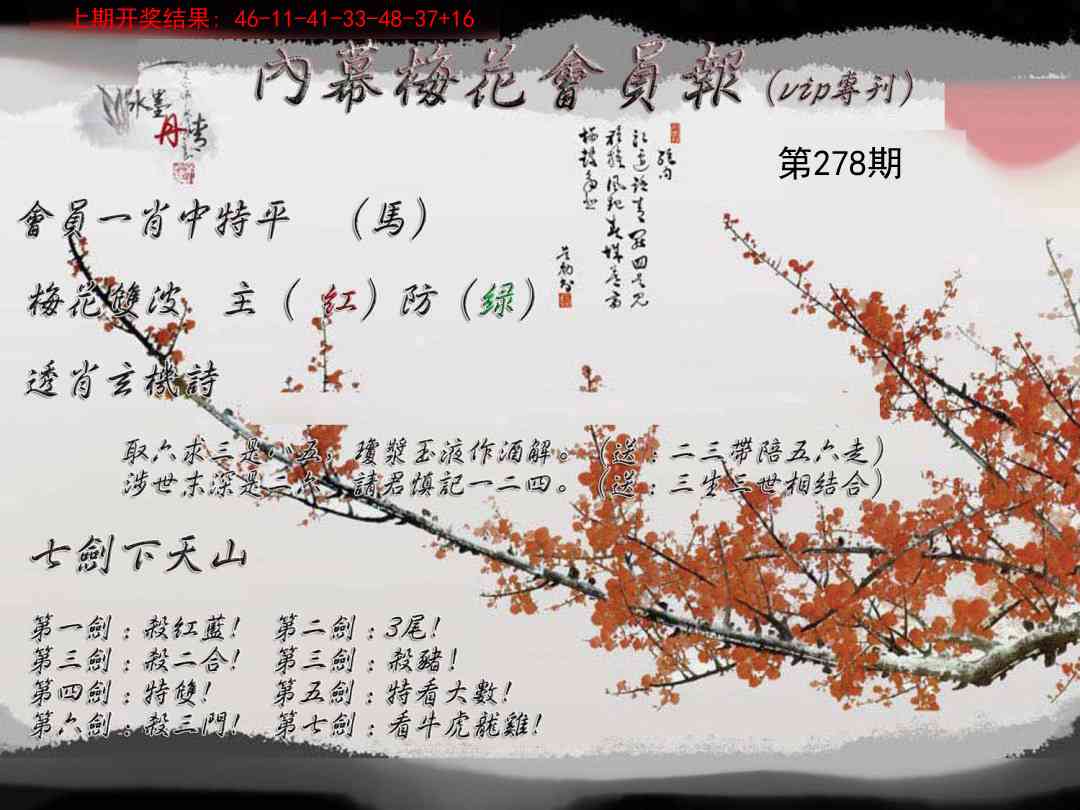 上期开奖结果: 46-11-41-33-48-37+16
內幕梅花會員報(vip專刊)
水墨丹情
第278期
會員一肖中特平 (馬)
梅花雙波 主(紅)防(緑)
透肖玄機詩
取六求三是八五,瓊漿玉液作酒解。(送:二三帶陪五六走)
涉世未深是三六,請君慎記一二四。(送:三生三世相结合)
七劍下天山
第一劍:殺紅藍! 第二劍:3尾!
第三劍:殺二合! 第三劍:殺豬!
第四劍:特雙! 第五劍:特看大數!
第六劍:殺三門! 第七劍:看牛虎龍雞!